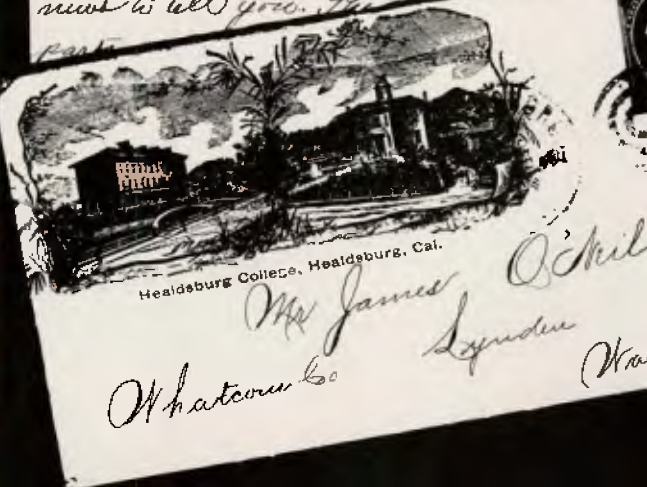 news to tell you. The
party
Healdsburg College, Healdsburg, Cal.
Mr James O'Neil
Lynden
Whatcom Co